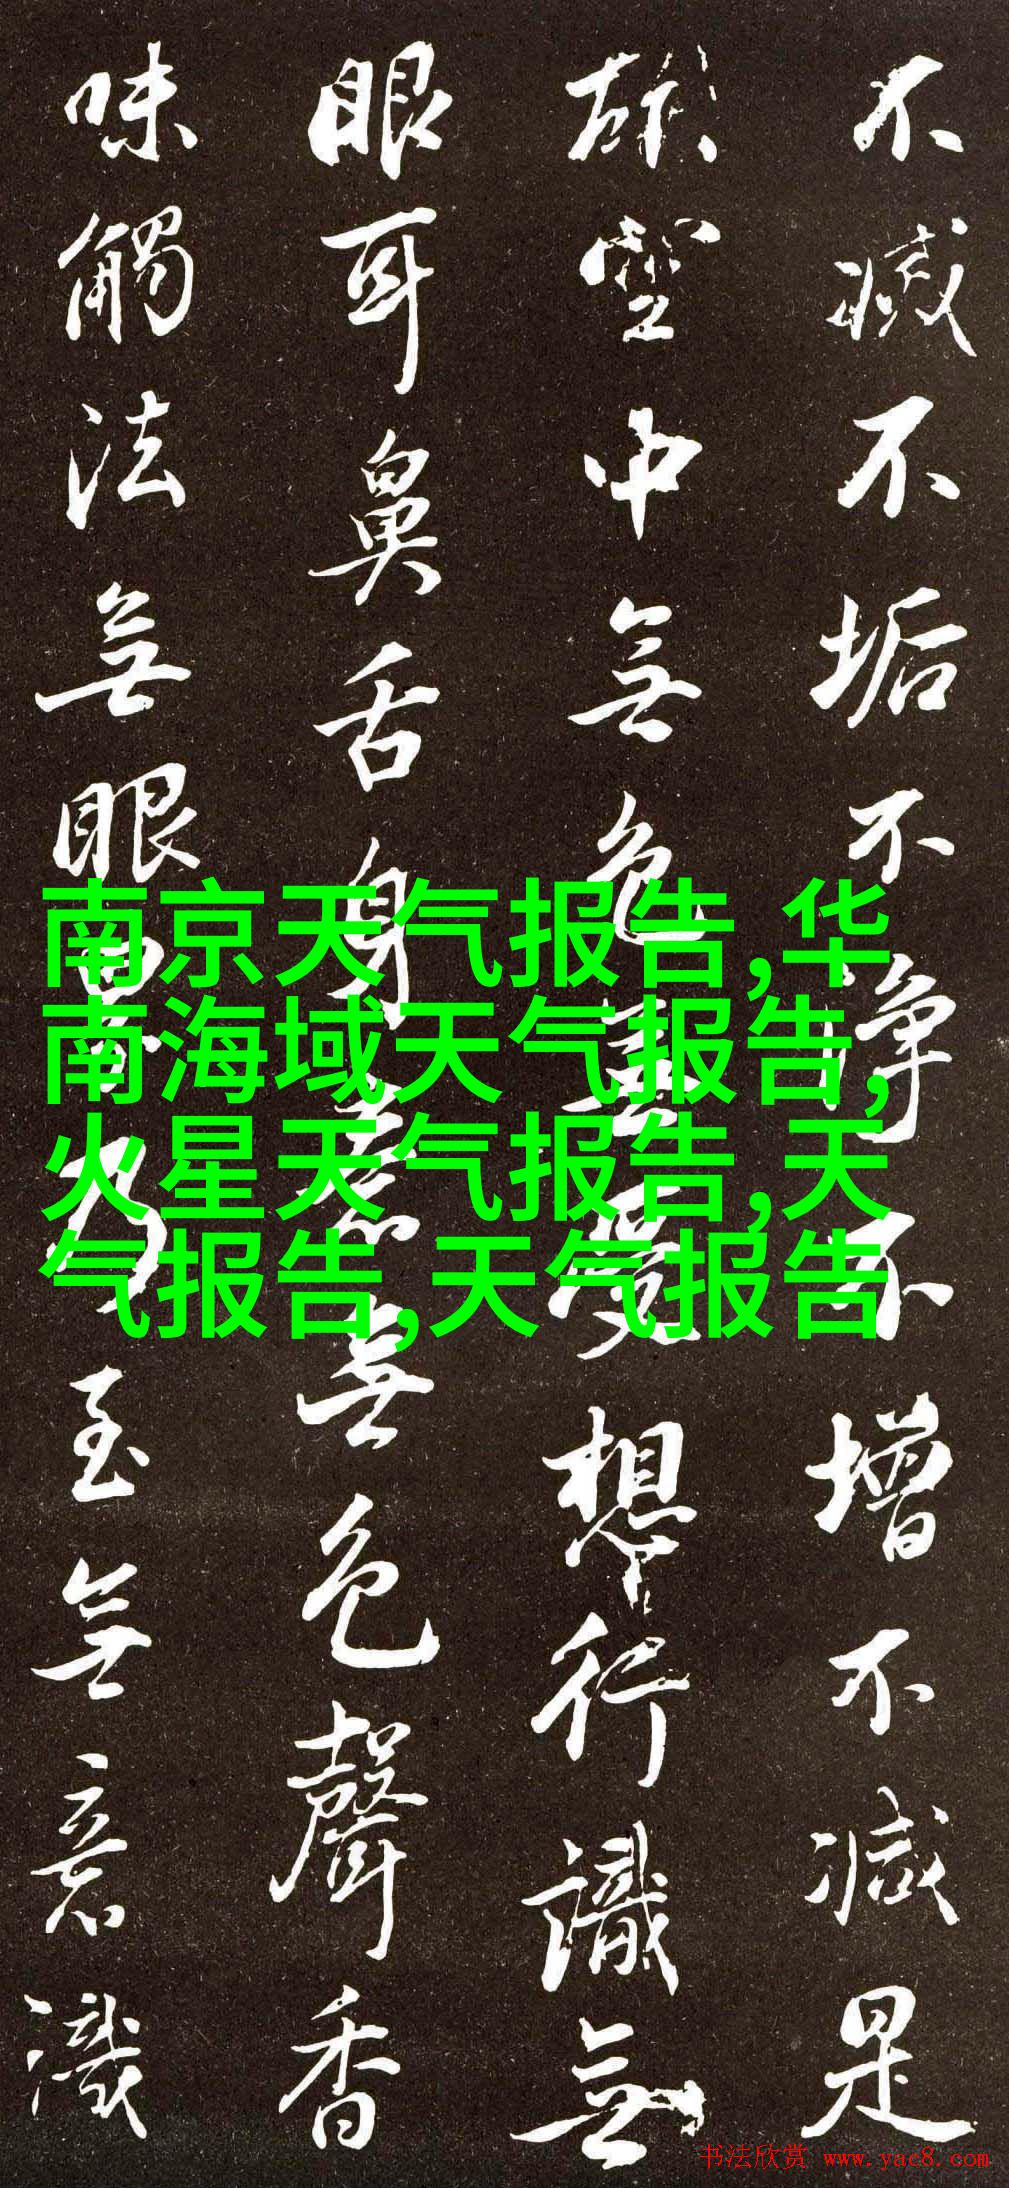 不滅不垢不淨不增不減是
故空中無色無受想行識無
眼耳鼻舌身意無色聲香
味觸法無眼界乃至無意識
南京天气报告,华
南海域天气报告,
火星天气报告,天
气报告,天气报告
书法欣赏 www.yac8.com